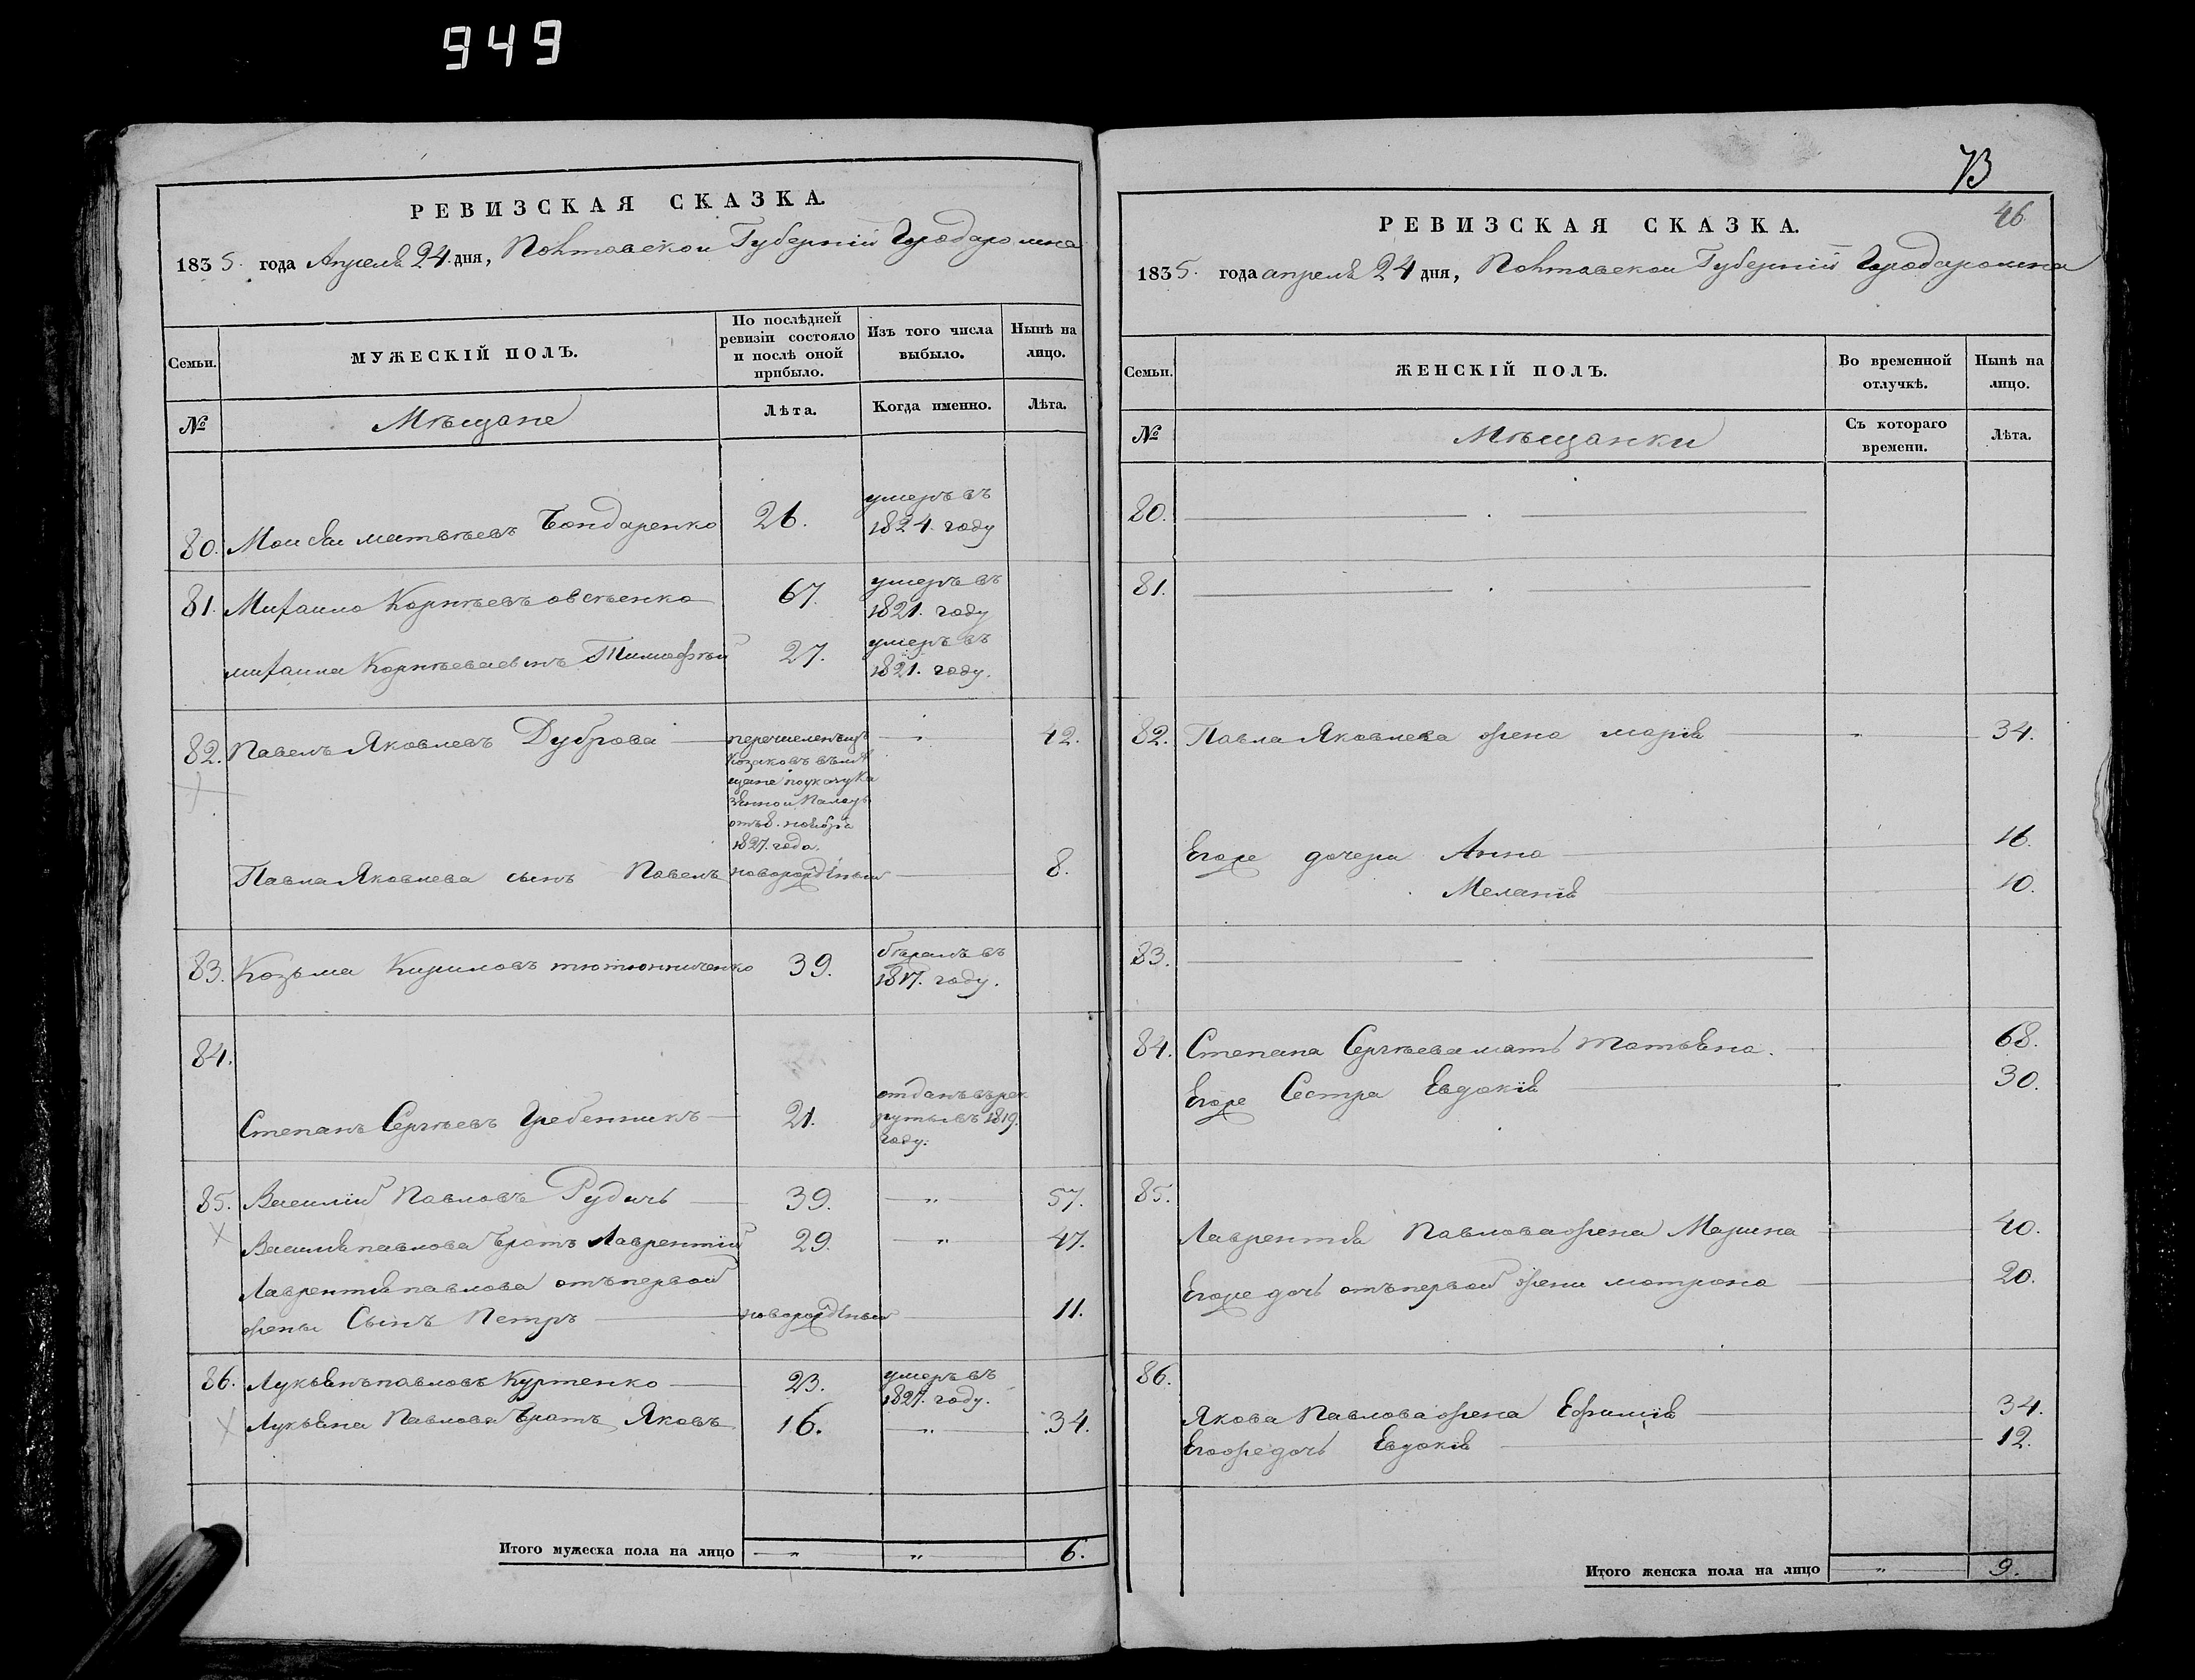 949
РЕВИЗСКАЯ СКАЗКА.
1835. года Апреля 24 дня, Полтавской Губерніи Города Ромна
Семьи.
МУЖЕСКІЙ ПОЛЪ.
По послѣдней ревизіи состояло и послѣ оной прибыло.
Изъ того числа выбыло.
Нынѣ на лицо.
№
Мѣщане
Лѣта.
Когда именно.
Лѣта.
80. Моисей Матвѣевъ Бондаренко 26. умеръ въ
1824. году
81. Михаило Корнѣевъ Овсѣенко 67. умеръ въ
1821. году
Михаила Корнѣева сынъ Тимофѣй 27. умеръ въ
1821. году.
82. Павелъ Яковлевъ Дуброва перечисленъ изъ „ 42.
козаковъ въ мѣ
щане по указу Ка
зенной Палаты
отъ 8. ноября
1827. года.
Павла Яковлева сынъ Павелъ новорожденный 8.
83. Козьма Кириловъ Тютюнниченко 39. бѣжалъ въ
1817. году.
84.
Степанъ Сергѣевъ Гребенникъ 21. отданъ въ рек
руты въ 1819.
году.
85. Василій Павловъ Рудичь 39. „ 57.
Василія Павлова братъ Лаврентій 29. „ 47.
Лаврентія Павлова отъ первой
жены Сынъ Петръ новорожденный 11.
86. Лукьянъ Павловъ Куртенко 23. умеръ въ
1827. году.
Лукьяна Павлова братъ Яковъ 16. „ 34.
Итого мужеска пола на лицо „ „ 6.
73
46
РЕВИЗСКАЯ СКАЗКА.
1835. года апреля 24 дня, Полтавской Губерніи Города Ромна
Семьи.
ЖЕНСКІЙ ПОЛЪ.
Во временной отлучкѣ.
Нынѣ на лицо.
№
Мѣщанки
Съ котораго времени.
Лѣта.
80.
81.
82. Павла Яковлева жена Марія „ 34.
Егоже дочери Анна 16.
Меланія 10.
83.
84. Степана Сергѣева мать Татьяна. 68.
Егоже Сестра Евдокія 30.
85.
Лаврентія Павлова жена Марина 40.
Егоже дочь отъ первой жены Матрона 20.
86.
Якова Павлова жена Ефимія 34.
Егоже дочь Евдокія 12.
Итого женска пола на лицо „ 9.